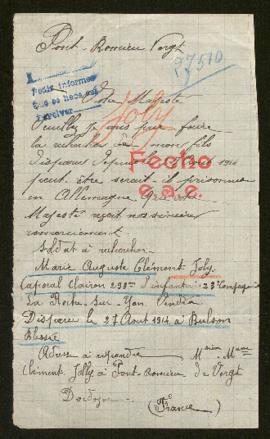 Pont-Romieu Vergt
97510
Pedir informes
que se haga sub
devolver
Votre Majesté
Joly
Veuillez je vous prie faire
la recherche de mon fils
disparu depuis le 1914
Fecho
peut être serait-il prisonnier
e.a.e.
en Allemagne
Majesté reçoit nos sincères
remerciement
Soldat à rechercher
Marie Auguste Clément Joly.
Caporal Clairon 293me d'infanterie 23 Compagnie
La Roche-Sur-Yon Vendée
Disparu le 27 Aout 1914 à Bulson
Adresse à répondre Mr
Clément Jolly à Pont-Romieu de Vergt
Dordogne
(France)